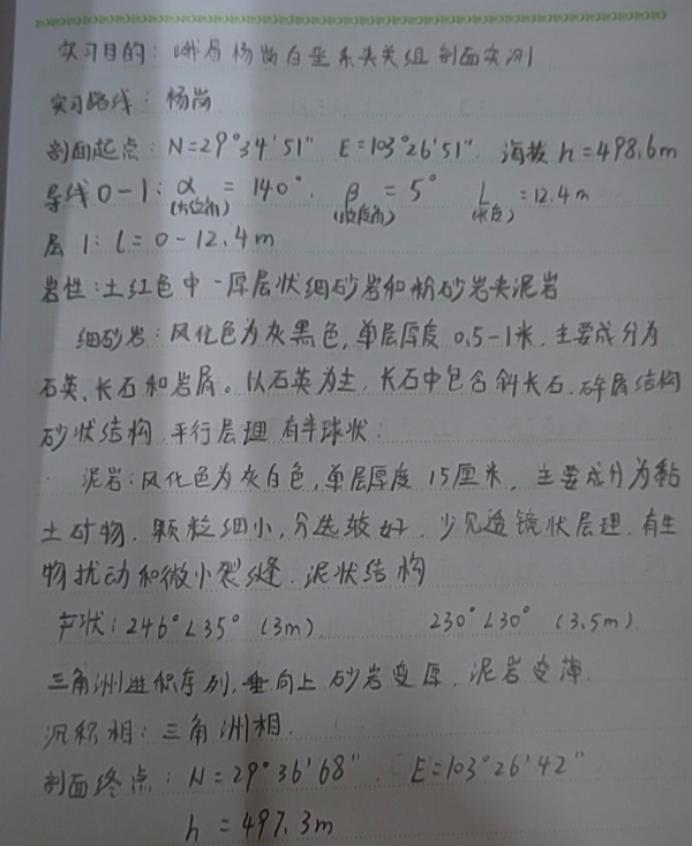 实习目的：峨眉杨岗白垩系夹关组剖面实测
实习路线：杨岗
剖面起点：N=29°34'51" E=103°26'51". 海拔 h=498.6m
导线0-1：α(方位角) = 140°. β(坡度角) = 5° L(长度) = 12.4m
层1：l=0-12.4m
岩性：土红色中-厚层状细砂岩和粉砂岩夹泥岩
细砂岩：风化色为灰黑色,单层厚度 0.5-1米.主要成分为
石英、长石和岩屑。以石英为主,长石中包含斜长石.碎屑结构
砂状结构.平行层理.有半球状.
泥岩：风化色为灰白色,单层厚度 15厘米,主要成分为黏
土矿物,颗粒细小,分选较好.少见透镜状层理.有生
物扰动和微小裂缝.泥状结构
产状：246°∠35° (3m). 230°∠30° (3.5m)
三角洲进积序列,垂向上砂岩变厚.泥岩变薄.
沉积相：三角洲相.
剖面终点：N=29°36'68". E=103°26'42"
h=497.3m